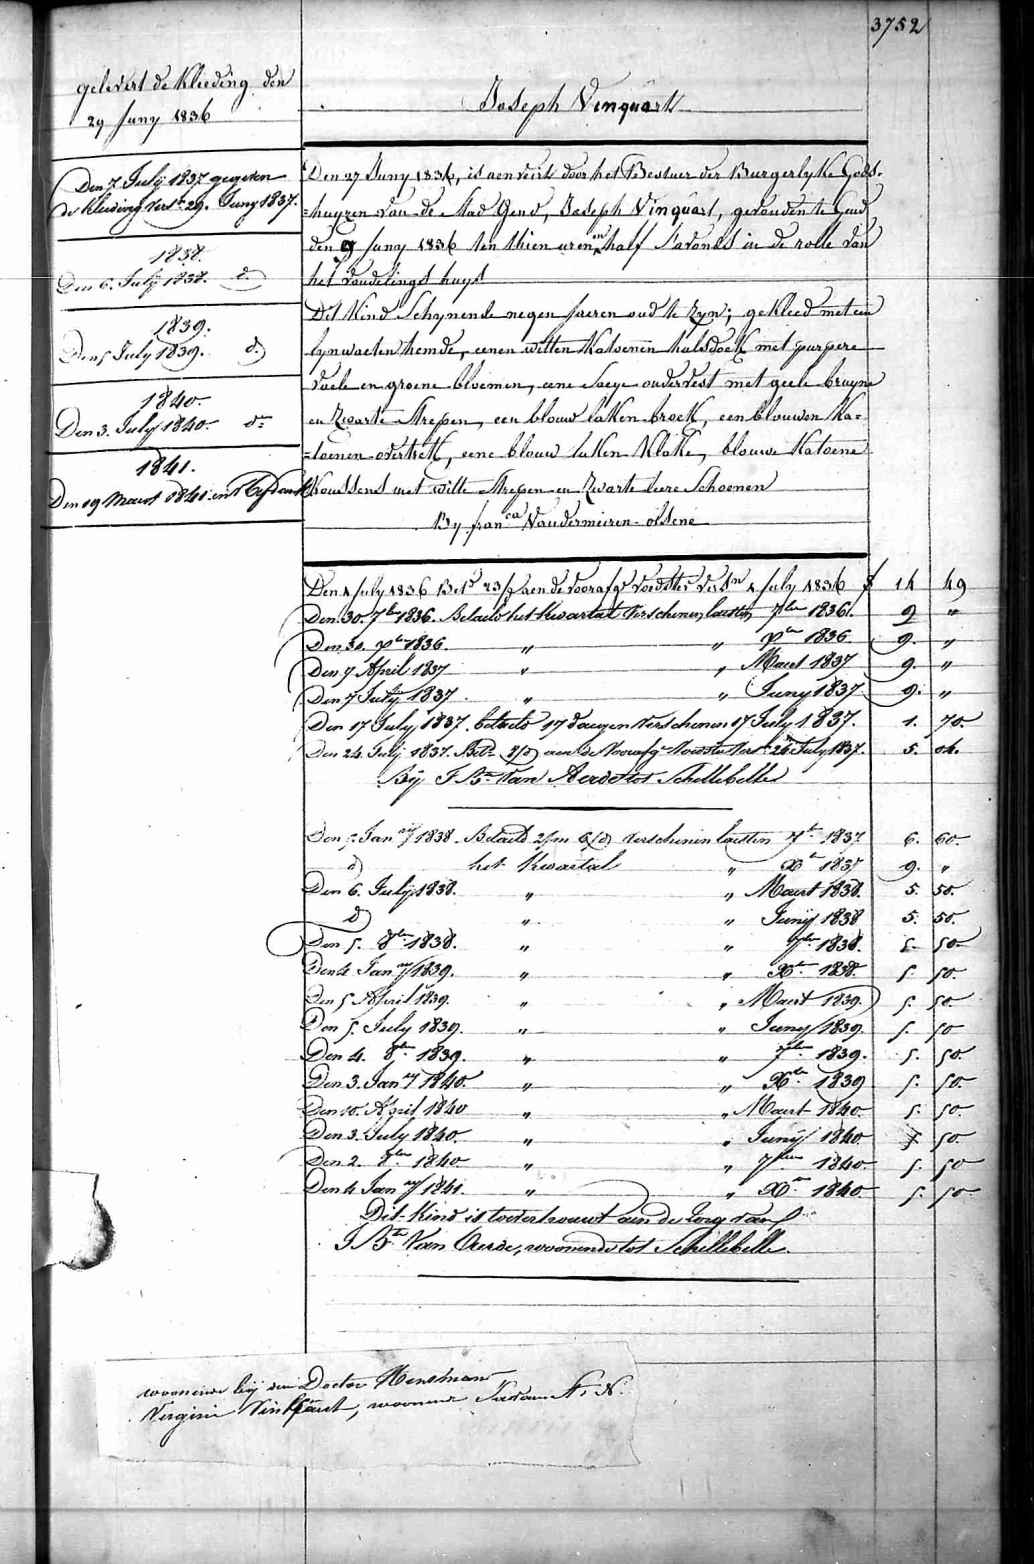 3752
gelevert de kleeding den
29 Juny 1836
Joseph Vinquart
Den 7 July 1837 gegeven
de kleeding vers.t 29. Juny 1837.
1838.
Den 6. July 1838. d.o
1839.
Den 5 July 1839. d.o
1840.
Den 3. July 1840. d.o
1841.
Den 19 Maert 1841 in
Den 27 Juny 1836, is aenveird door het Bestuer der Burgerlyke Gods-
=huyzen van de Stad Gend, Joseph Vinquart, gevonden te Gend
den 9 Juny 1836 ten thien uren en half s'avonds in de rolle van
het vondelings huys
Dit kind schynende negen jaeren oud te zyn; gekleed met een
lynwaeten hemde, eenen witten katoenen halsdoek met purpere
en groene bloemen, eene Saeye ondervest met geele bruyne
en zwarte strepen, een blouw laken broek, een blouwen Ka=
=toenen overtrek, eene blouw laken klakke, blouwe katoene
koussens met witte strepen en zwarte leere schoenen
By fran.ca Vandermeiren olsene
Den 4 July 1836 Bet.d 23/ aen de voorafg.e voedster vers.n 4 July 1836 f 14 49
Den 30. 7.ber 1836. Betaeld het kwartael verschenen laesten 7.ber 1836. 9 "
Den 30. X.ber 1836. " " X.ber 1836 9. "
Den 7 April 1837 " " Maert 1837 9. "
Den 7 July 1837 " " Juny 1837 9. "
Den 17 July 1837. betaeld 17 daegen verschenen 17 July 1837. 1. 70.
Den 24 July 1837. Bet.d aen de voorafg.e voedster vers.n 24 July 1837. 5. 04.
Bij J B.te Van Aerde tot Schellebelle
Den 5 Jan.ry 1838. Betaeld 2/m 6/d verschenen laesten 7.br 1837 6. 60.
d.o het kwartael " X.br 1837 9. "
Den 6. July 1838. " " Maert 1838. 5. 50.
d.o " " Junij 1838 5. 50.
Den 5. 8.ber 1838. " " 7.ber 1838. 5. 50
Den 4 Jan.ry 1839. " " X.ber 1838. 5. 50.
Den 5 April 1839. " " Maert 1839. 5. 50
Den 5. July 1839. " " Juny 1839. 5. 50
Den 4. 8.ber 1839. " " 7.ber 1839. 5. 50
Den 3. Jan.ry 1840. " " X.ber 1839 5. 50.
Den 10. April 1840 " " Maert 1840. 5. 50.
Den 3. July 1840. " " Junij 1840. 5. 50.
Den 2. 8.ber 1840 " " 7.ber 1840. 5. 50
Den 4 Jan.ry 1841. " " X.er 1840. 5. 50.
Dit kind is toevertrouwt aen de zorg van
J B.te Van Aerde, woonende tot Schellebelle.
woonende bij den Doctor Hensman
Virginie Vinkaert, woonende N.